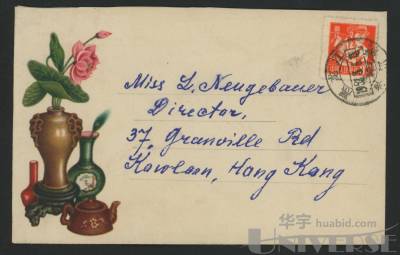 Miss L. Neugebauer
Director,
37, Granville Rd
Kowloon, Hong Kong
华宇 huabid.com
UNIVERSE